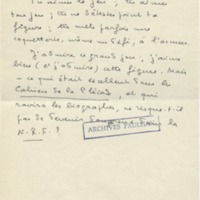 tu aimes le jeu ; tu aimes
ton jeu ; tu ne détestes point ta
figure, tu mets parfois une
coquetterie, même un défi, à l'accuser.
J'admire ce grand jeu, j'aime
bien (et j'admire) cette figure. Mais
ce qui était excellent dans les
Cahiers de la Pléiade, et qui
ravira les biographes, ne risque-t-il
pas de devenir dans la
N. R. F. ?
ARCHIVES PAULHAN